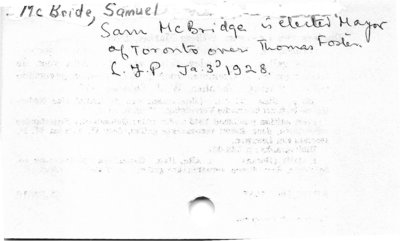 McBride, Samuel
Sam McBridge is elected Mayor
of Toronto over Thomas Foster.
L.F.P. Ja 3, 1928.